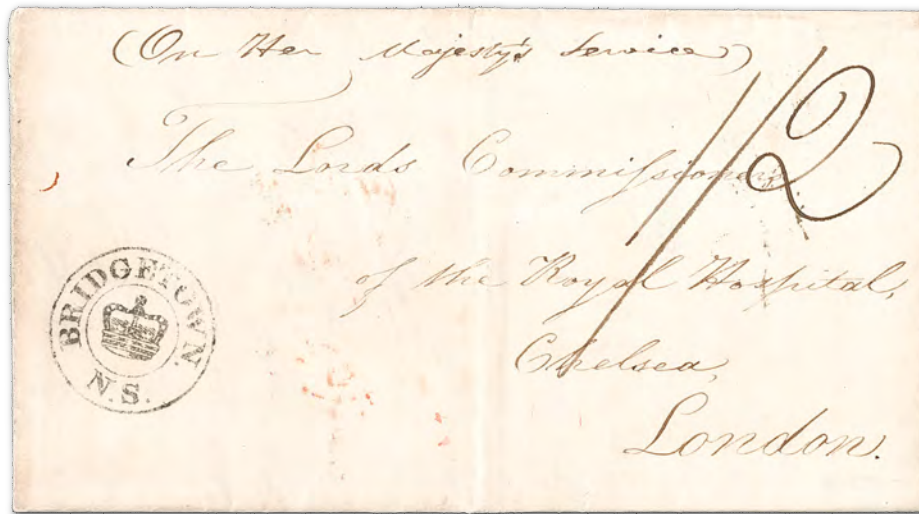 (On Her Majesty's Service)
1/2
The Lords Commissioners
of the Royal Hospital,
Chelsea,
London.
BRIDGETOWN.
N.S.